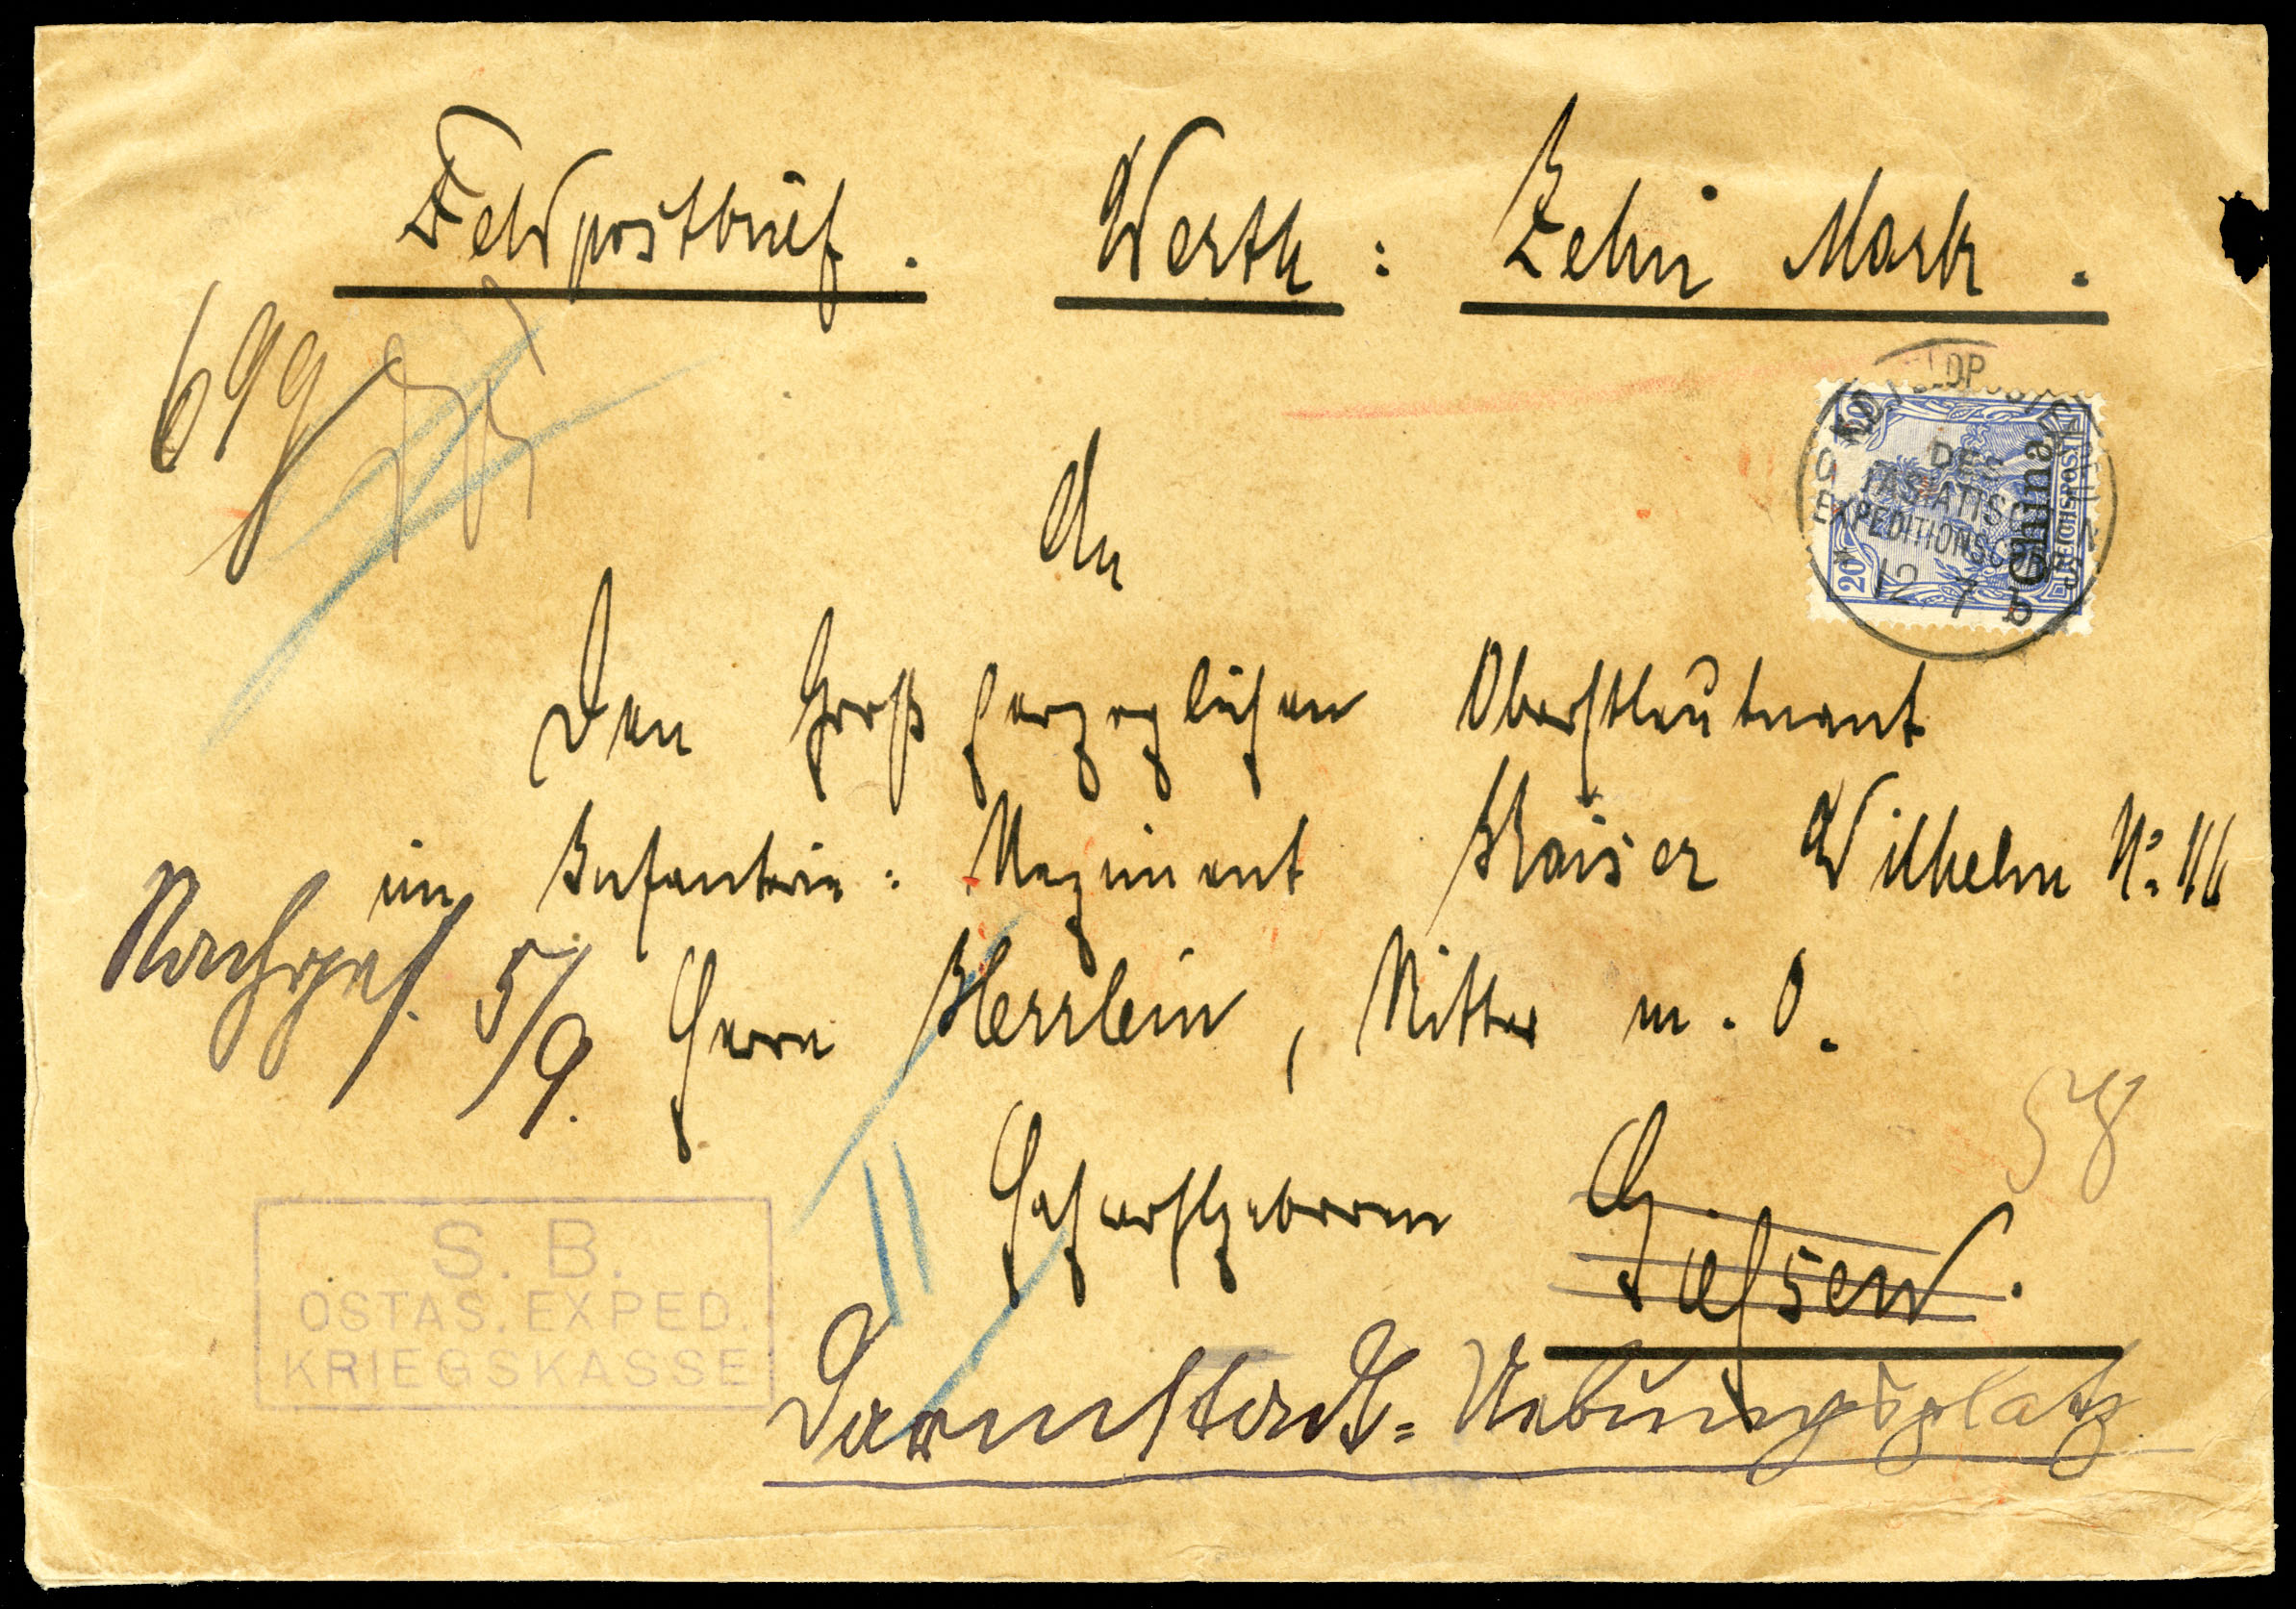 Feldpostbrief. Werth: Zehn Mark.
699
KD. FELDPOSTEXPEDITION
DES
OSTASIATISCHEN
EXPEDITIONSCORPS
* 12 7 b
20 20
China
REICHSPOST
An
Den Großherzoglichen Oberstleutnant
im Infanterie: Regiment Kaiser Wilhelm No. 116
Nachges. 5/9.
Herrn Herrlein, Ritter m. O.
58
Hochwohlgeboren
Giessen.
S. B.
OSTAS. EXPED.
KRIEGSKASSE
Darmstadt=Uebungsplatz